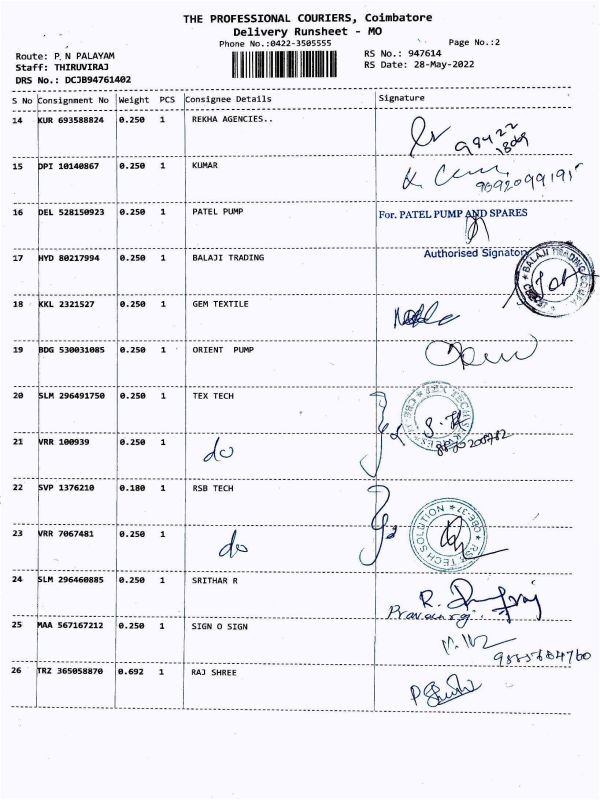 THE PROFESSIONAL COURIERS, Coimbatore
Delivery Runsheet - MO
Phone No.:0422-3505555 Page No.:2
Route: P N PALAYAM RS No.: 947614
Staff: THIRUVIRAJ RS Date: 28-May-2022
DRS No.: DCJB94761402
S No Consignment No Weight PCS Consignee Details Signature
14 KUR 693588824 0.250 1 REKHA AGENCIES..
98422
15 DPI 10140867 0.250 1 KUMAR
9092099195
16 DEL 528150923 0.250 1 PATEL PUMP For. PATEL PUMP AND SPARES
Authorised Signatory
17 HYD 80217994 0.250 1 BALAJI TRADING
18 KKL 2321527 0.250 1 GEM TEXTILE
19 BDG 530031085 0.250 1 ORIENT PUMP
20 SLM 296491750 0.250 1 TEX TECH
21 VRR 100939 0.250 1 do
22 SVP 1376210 0.180 1 RSB TECH
23 VRR 7067481 0.250 1 do
24 SLM 296460885 0.250 1 SRITHAR R
25 MAA 567167212 0.250 1 SIGN O SIGN
26 TRZ 365058870 0.692 1 RAJ SHREE